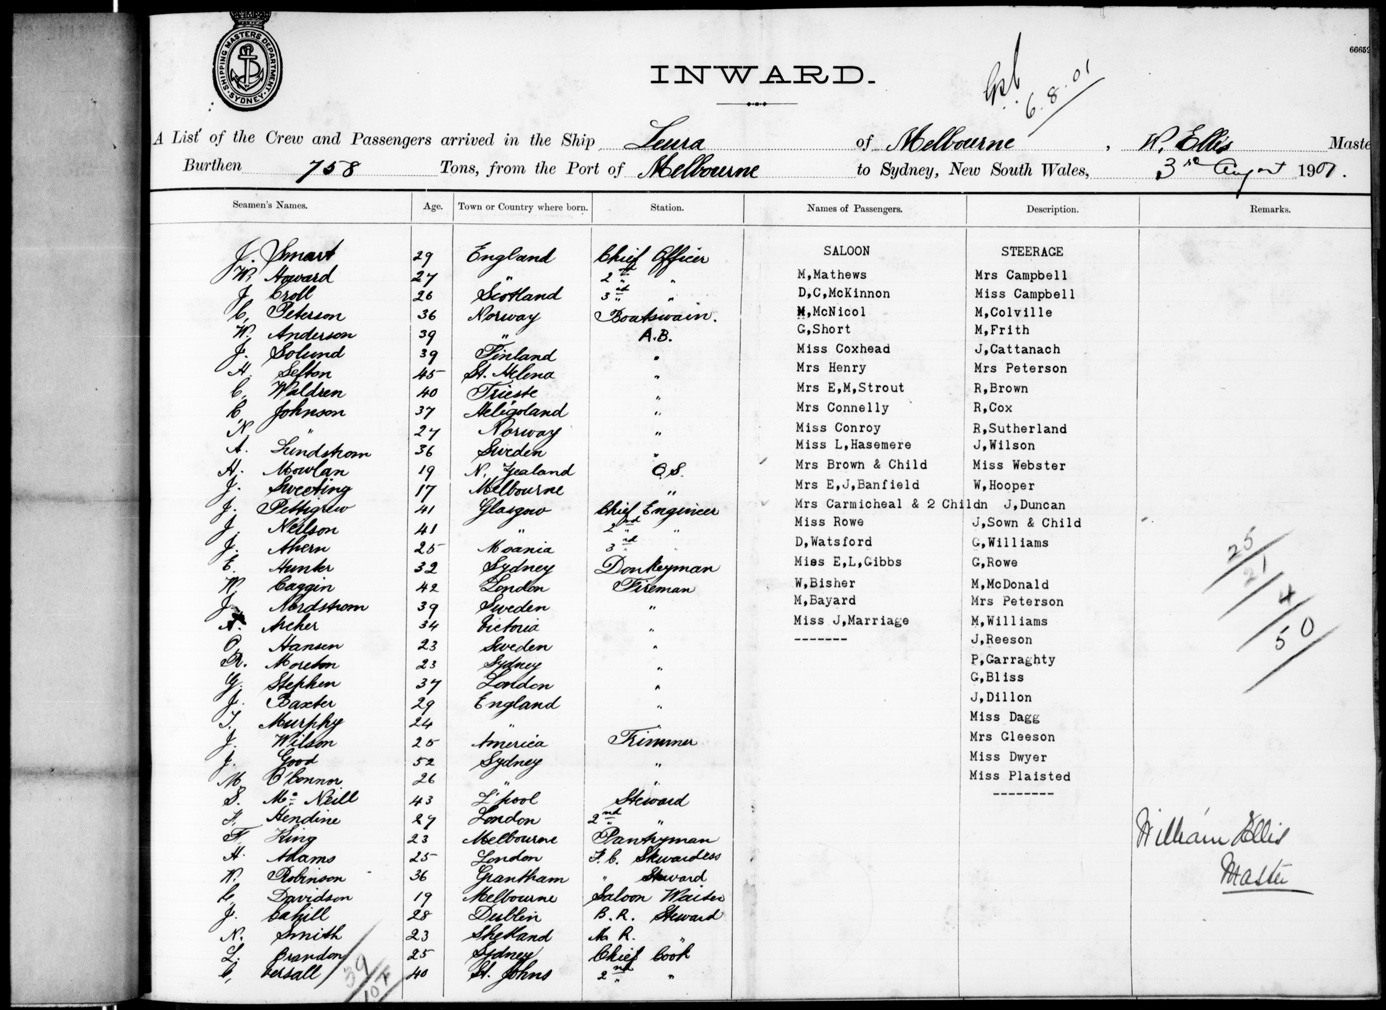 SHIPPING MASTERS DEPARTMENT
SYDNEY
66652
INWARD.
6.8.01
A List of the Crew and Passengers arrived in the Ship Leura of Melbourne, W. Ellis Maste
Burthen 758 Tons, from the Port of Melbourne to Sydney, New South Wales, 3rd August 1901.
Seamen's Names. Age. Town or Country where born. Station. Names of Passengers. Description. Remarks.
SALOON STEERAGE
J. Smart 29 England Chief Officer
W. Howard 27 " 2nd " M,Mathews Mrs Campbell
J. Croll 26 Scotland 3rd " D,C,McKinnon Miss Campbell
C. Peterson 36 Norway Boatswain. M,McNicol M,Colville
W. Anderson 39 " A.B. G,Short M,Frith
J. Solund 39 Finland " Miss Coxhead J,Cattanach
H. Sefton 45 St. Helena " Mrs Henry Mrs Peterson
C. Waldren 40 Trieste " Mrs E,M,Strout R,Brown
C. Johnson 37 Heligoland " Mrs Connelly R,Cox
N. " 27 Norway " Miss Conroy R,Sutherland
A. Lundstrom 36 Sweden " Miss L,Hasemere J,Wilson
H. Mowlan 19 N. Zealand O.S. Mrs Brown & Child Miss Webster
J. Sweeting 17 Melbourne " Mrs E,J,Banfield W,Hooper
J. Pettigrew 41 Glasgow Chief Engineer Mrs Carmicheal & 2 Childn J,Duncan
J. Neilson 41 " 2nd " Miss Rowe J,Sown & Child
J. Ahern 25 Moania 3rd " D,Watsford G,Williams
E. Hunter 32 Sydney Donkeyman Miss E,L,Gibbs G,Rowe
W. Caggin 42 London Fireman W,Bisher M,McDonald
J. Nordstrom 39 Sweden " M,Bayard Mrs Peterson
A. Archer 34 Victoria " Miss J,Marriage M,Williams
O. Hansen 23 Sweden " ------- J,Reeson
R. Moreton 23 Sydney " P,Garraghty
G. Stephen 37 London " G,Bliss
J. Baxter 29 England " J,Dillon
T. Murphy 24 " Miss Dagg
J. Wilson 25 America Trimmer Mrs Gleeson
J. Good 52 Sydney " Miss Dwyer
M. O'Connor 26 " " Miss Plaisted
S. McNeill 43 L'pool Steward --------
F. Hendine 27 London 2nd "
F. King 23 Melbourne Pantryman
H. Adams 25 London F.C. Stewardess
W. Robinson 36 Grantham " Steward
C. Davidson 19 Melbourne Saloon Waiter
J. Cahill 28 Dublin B.R. Steward
N. Smith 23 Shetland M.R. "
L. Brandon 25 Sydney Chief Cook
C. Versall 40 St. Johns 2nd "
25
21
4
50
William Ellis
Master
39
107